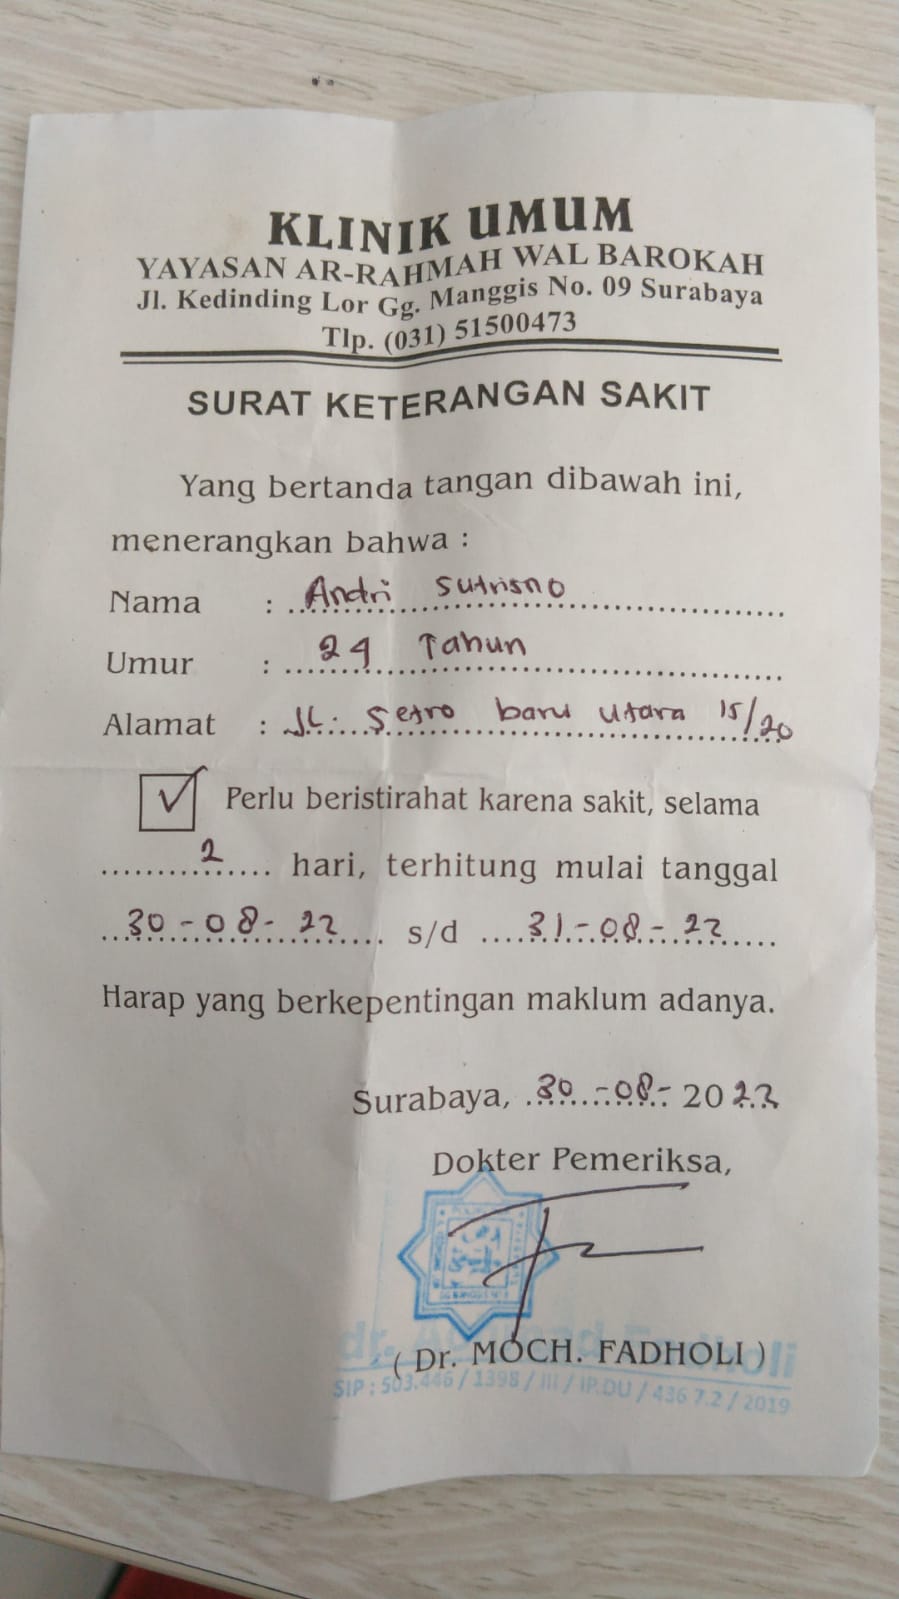 KLINIK UMUM
YAYASAN AR-RAHMAH WAL BAROKAH
Jl. Kedinding Lor Gg. Manggis No. 09 Surabaya
Tlp. (031) 51500473
SURAT KETERANGAN SAKIT
Yang bertanda tangan dibawah ini,
menerangkan bahwa :
Nama : Andri Sutrisno
Umur : 29 Tahun
Alamat : JL. Setro baru Utara 15/20
Perlu beristirahat karena sakit, selama
2 hari, terhitung mulai tanggal
30-08-22 s/d 31-08-22
Harap yang berkepentingan maklum adanya.
Surabaya, 30-08-2022
Dokter Pemeriksa,
( Dr. MOCH. FADHOLI )
SIP : 503.446 / 1398 / III / IP.DU / 436 7.2 / 2019